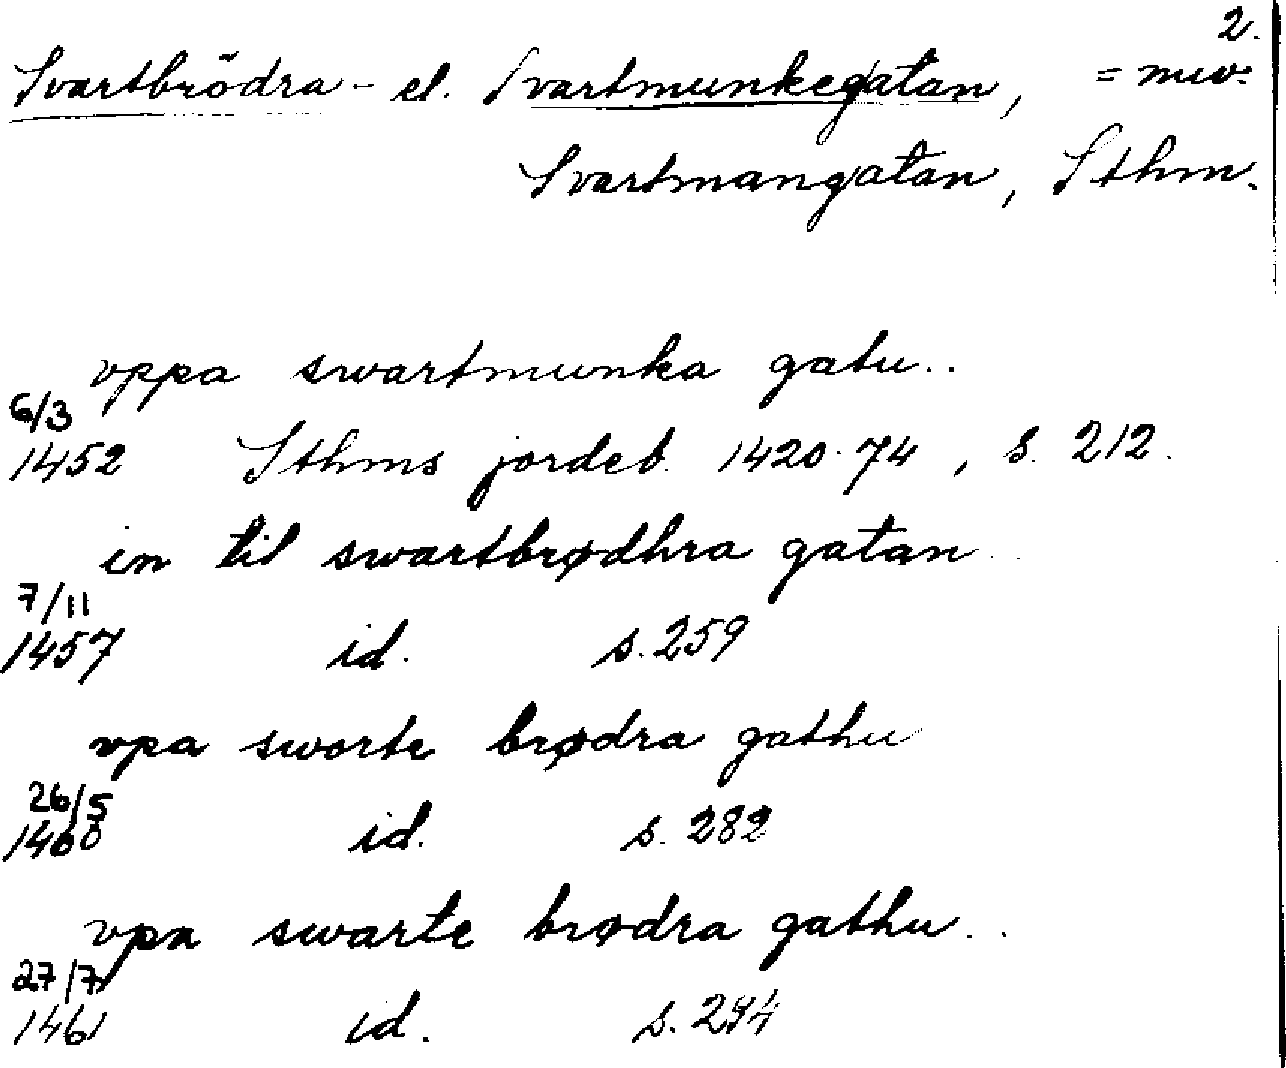 2.
Svartbrödra- el. Svartmunkegatan, = nuv.
Svartmangatan, Sthm.
vppa swartmunka gatu..
6/3
1452 Sthms jordeb. 1420-74, s. 212.
in til swartbrødhra gatan..
7/11
1457 id. s. 259
vpa sworte brødra gathu
26/5
1460 id. s. 282
vpa swarte brødra gathu..
27/7
1461 id. s. 294